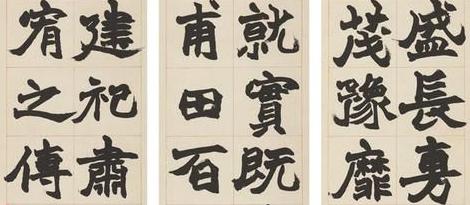 盛長勇
茂豫靡
就實既
甫田百
建祀肅
宥之傳